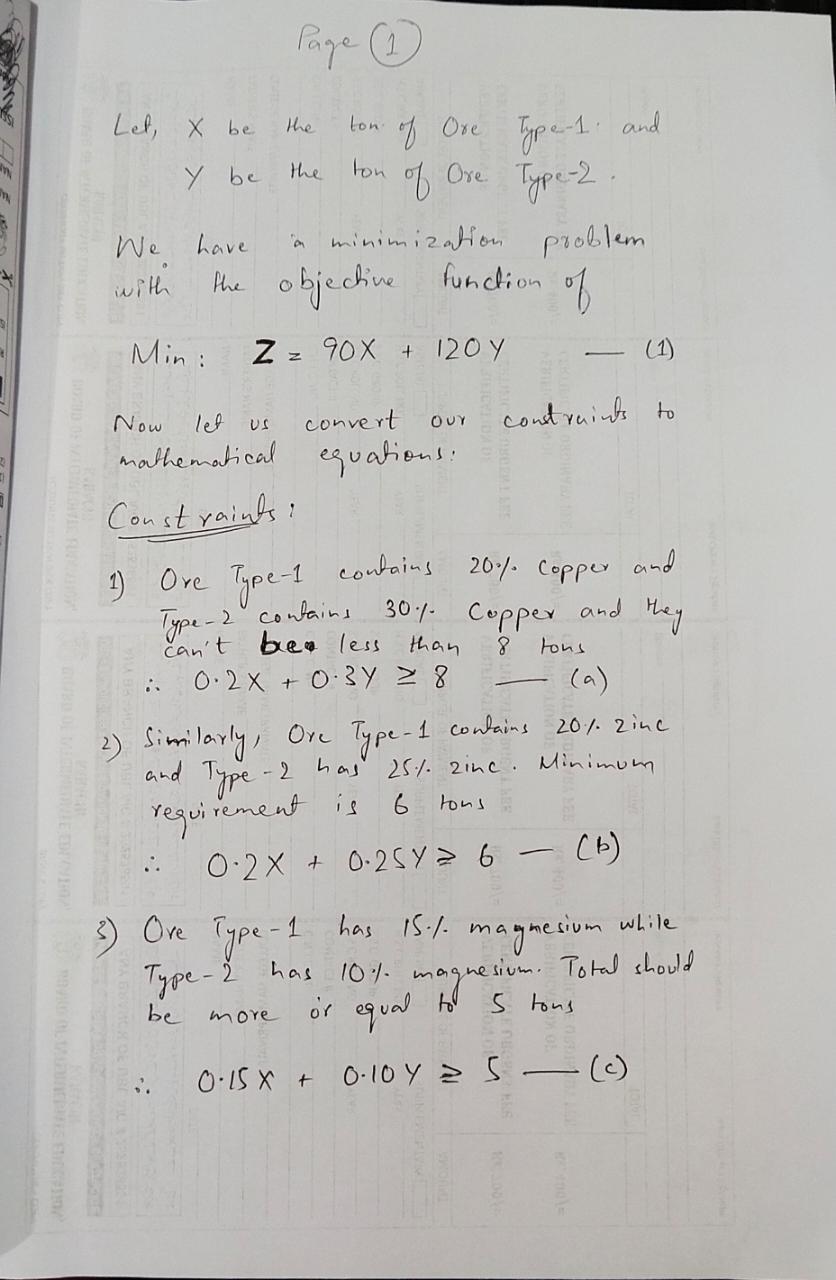 Page 1
Let, X be the ton of Ore Type-1 and
Y be the ton of Ore Type-2.
We have a minimization problem
with the objective function of
Min: Z = 90X + 120Y — (1)
Now let us convert our constraints to
mathematical equations:
Constraints:
1) Ore Type-1 contains 20% Copper and
Type-2 contains 30% Copper and they
can't be less than 8 tons
∴ 0.2X + 0.3Y ≥ 8 — (a)
2) Similarly, Ore Type-1 contains 20% zinc
and Type-2 has 25% zinc. Minimum
requirement is 6 tons
∴ 0.2X + 0.25Y ≥ 6 — (b)
3) Ore Type-1 has 15% magnesium while
Type-2 has 10% magnesium. Total should
be more or equal to 5 tons
∴ 0.15X + 0.10Y ≥ 5 — (c)